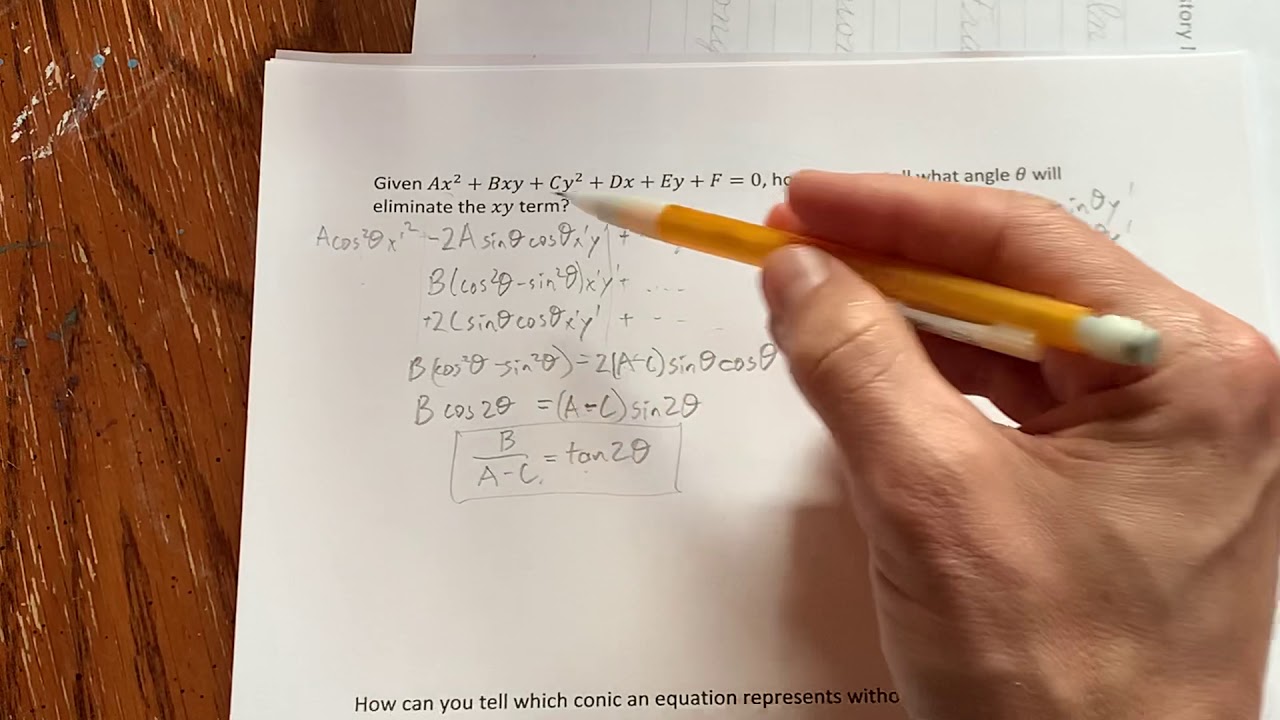 story
Given Ax² + Bxy + Cy² + Dx + Ey + F = 0, what angle θ will
eliminate the xy term?
sinθy'
Acos²θx'² -2Asinθcosθx'y' +
B(cos²θ-sin²θ)x'y'+ ....
+2Csinθcosθx'y' + - - -
B(cos²θ-sin²θ)=2(A-C)sinθcosθ
Bcos2θ =(A-C)sin2θ
B/(A-C) = tan2θ
How can you tell which conic an equation represents